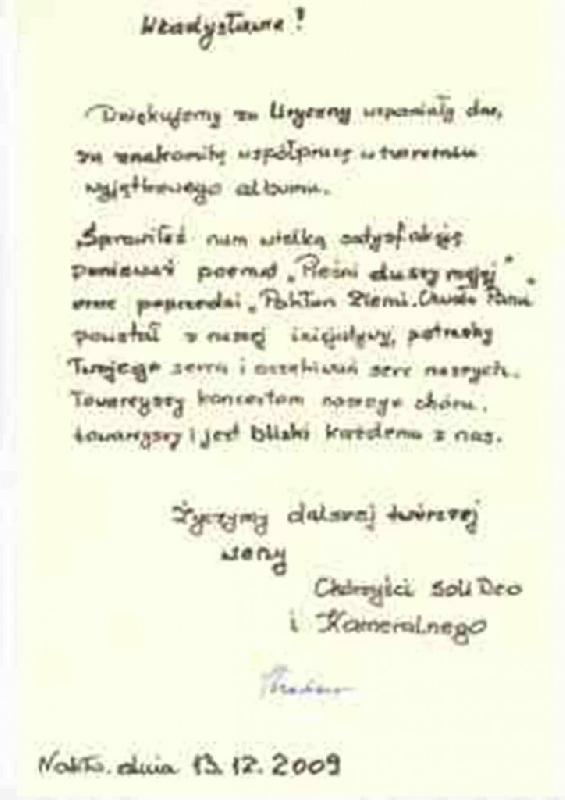 Władysławie!
Dziękujemy za liryczny wspaniały dar,
za znakomitą współpracę w tworzeniu
wyjątkowego albumu.
Sprawiłeś nam wielką satysfakcję
ponieważ poemat „Pieśni duszy mojej"
oraz poprzedni „Pokłon Ziemi. Chwała Panu"
powstał z naszej inicjatywy, potrzeby
Twojego serca i oczekiwań serc naszych.
Towarzyszy koncertom naszego chóru,
towarzyszy i jest bliski każdemu z nas.
Życzymy dalszej twórczej
weny
Chórzyści Soli Deo
i Kameralnego
Nakło, dnia 13.12.2009